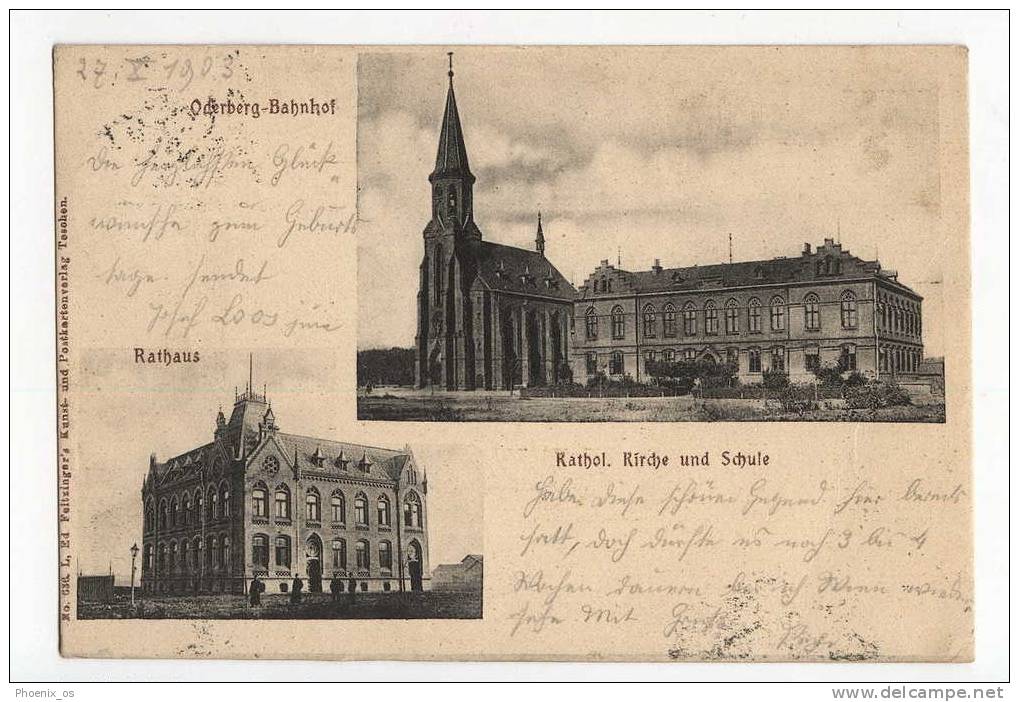 27. X 1903
Oderberg-Bahnhof
Die herzlichsten Glück
wünsche zum Geburts
tage sendet
Josef Loos jun
Rathaus
No. 636. L, Ed Feitzinger's Kunst- und Postkartenverlag Teschen.
Kathol. Kirche und Schule
Habe diese schöne Gegend hier bereits
satt, doch dürfte es noch 3 bis 4
Wochen dauern bis ich Wien wieder
sehe Mit Gruß
Phoenix_os
http://www.delcampe.net